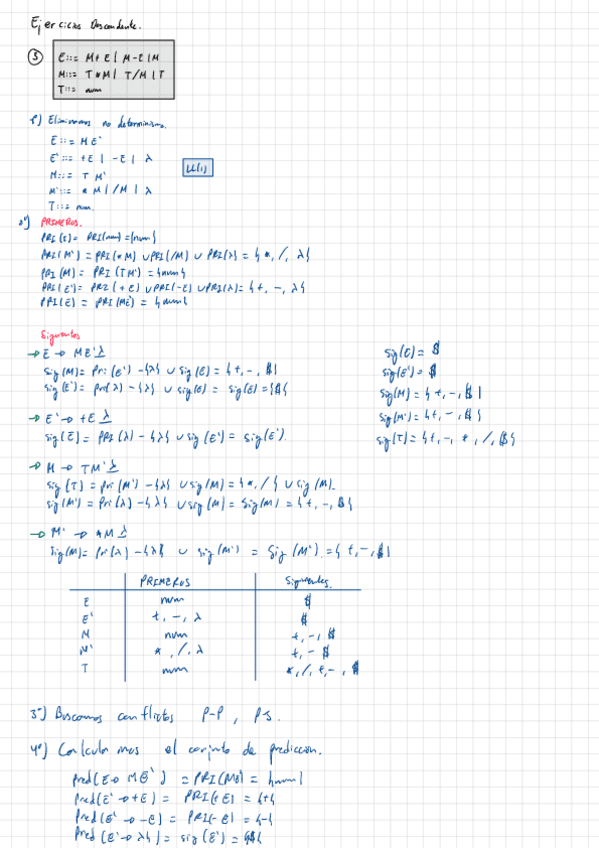 Ejercicios Descendente.
5 E::= M+E | M-E | M
M::= T*M | T/M | T
T::= num
1º) Eliminamos no determinismo.
E::= ME'
E'::= +E | -E | λ
M::= T M'
M'::= *M | /M | λ
T::= num.
LL(1)
2º) PRIMEROS.
PRI(T)= PRI(num)={num}
PRI(M')= PRI(*M) ∪ PRI(/M) ∪ PRI(λ) = {*, /, λ}
PRI(M)= PRI(TM')= {num}
PRI(E')= PRI(+E) ∪ PRI(-E) ∪ PRI(λ)= {+, -, λ}
PRI(E)= PRI(ME')= {num}
Siguientes
→ E → ME'λ
Sig(M)= Pri(E') -{λ} ∪ Sig(E)= {+, -, $}
Sig(E')= Pri(λ) -{λ} ∪ sig(E) = sig(E)={$}
→ E' → +E λ
Sig(E)= PRI(λ) -{λ} ∪ sig(E') = sig(E').
→ M → TM'λ
Sig(T)= Pri(M') -{λ} ∪ sig(M)= {*, /} ∪ sig(M).
Sig(M')= Pri(λ) -{λ} ∪ Sig(M)= Sig(M)= {+, -, $}
→ M' → *M λ
Sig(M)= Pri(λ) -{λ} ∪ sig(M') = Sig(M')= {+, -, $}
Sig(E)= $
Sig(E')= $
Sig(M)= {+, -, $}
Sig(M')= {+, -, $}
Sig(T)= {+, -, *, /, $}
PRIMEROS Siguientes.
E num $
E' +, -, λ $
M num +, -, $
M' *, /, λ +, - $
T num *, /, +, -, $
3º) Buscamos conflictos P-P, P-S.
4º) Calculamos el conjunto de predicción.
Pred(E→ ME') = PRI(ME') = {num}
Pred(E'→+E) = PRI(+E) = {+}
Pred(E'→-E) = PRI(-E) = {-}
Pred(E'→λ) = sig(E') = {$}